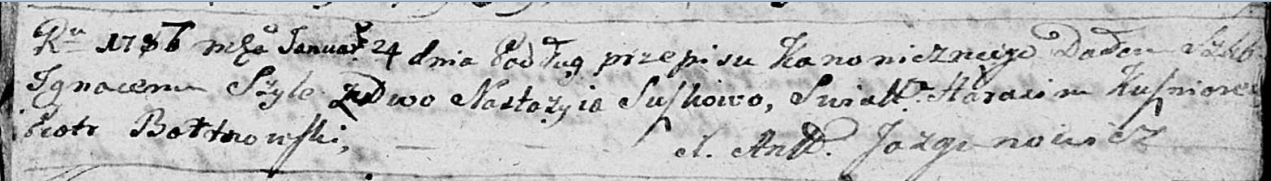 Ru 1786 mca Januar 24 dnia Podług przepisu Kanonicznego Dałem Szlub
Ignacemu Szyle z Wdwo Nastazyia Suszkowo, Swiatk. Harasim Kuszniorew
Piotr Bołtnowski,
X. Ant. Jazgunowicz